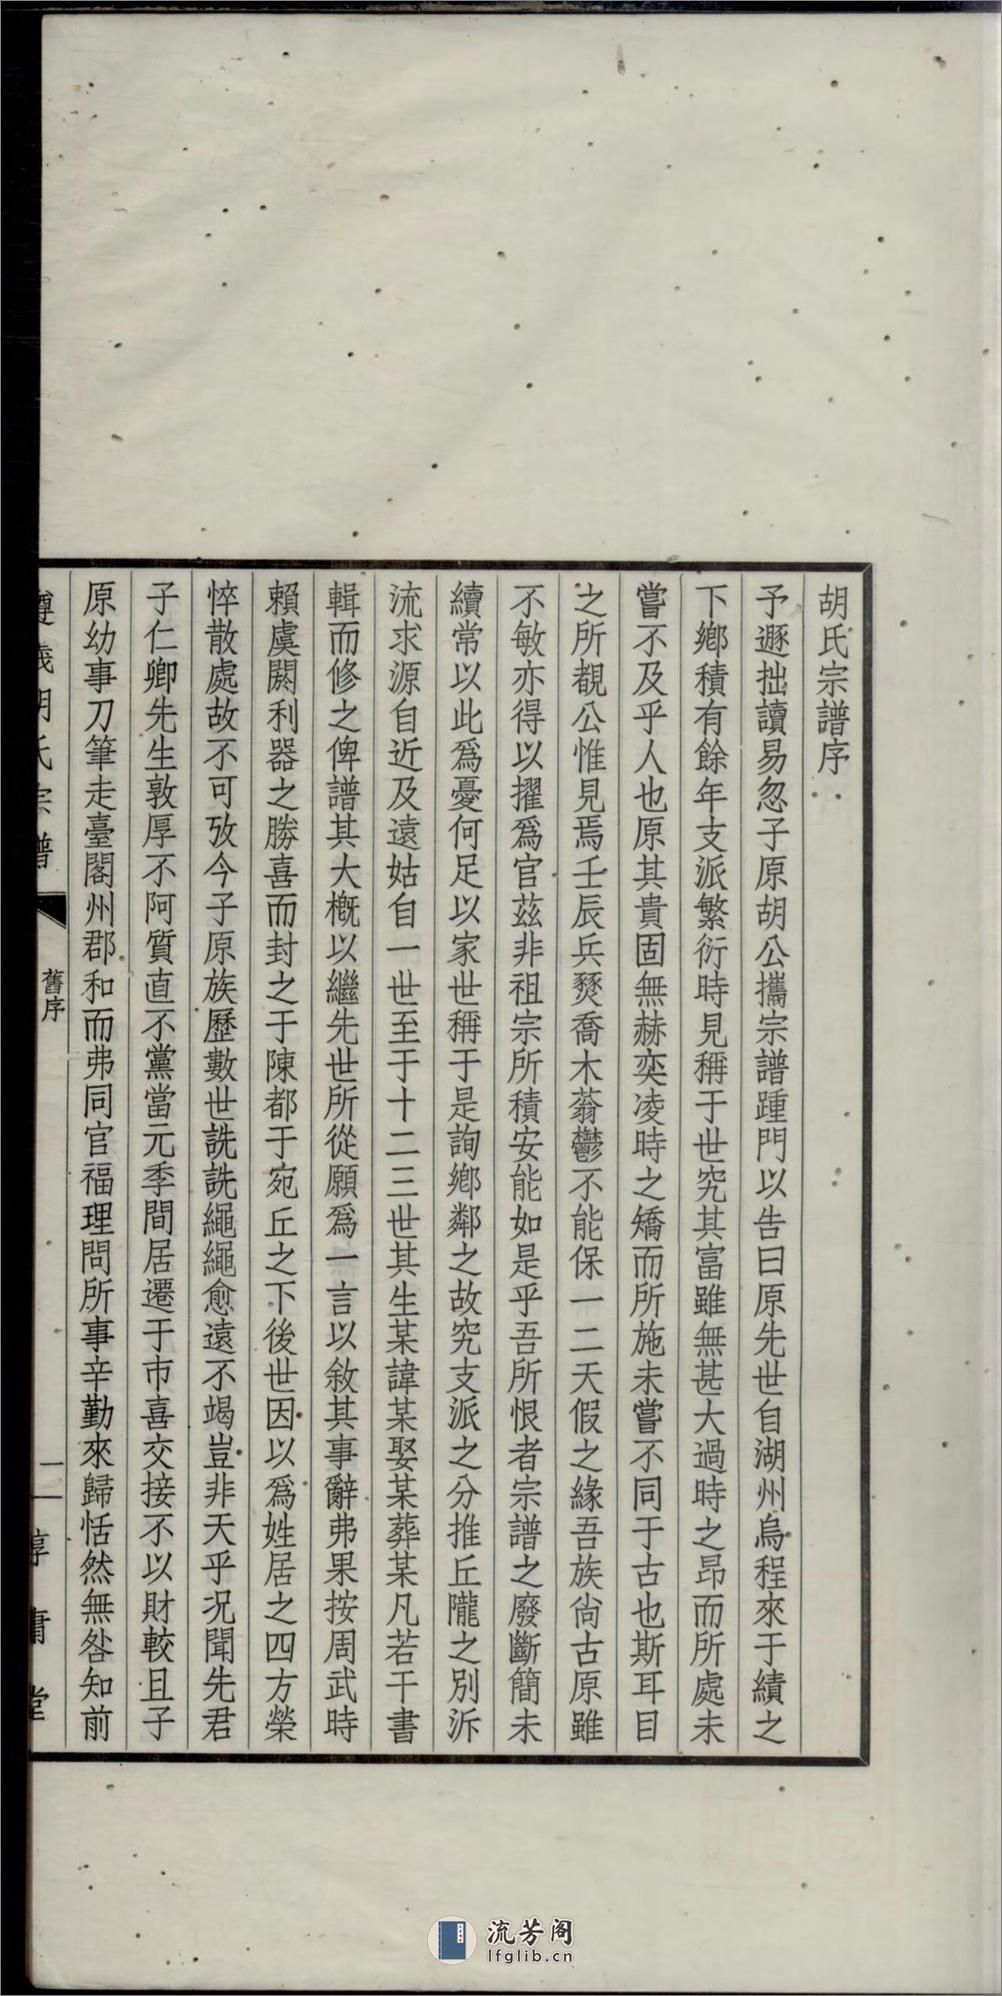 胡氏宗譜序
予遯拙讀易忽子原胡公攜宗譜踵門以告曰原先世自湖州烏程來于績之
下鄉積有餘年支派繁衍時見稱于世究其富雖無甚大過時之昂而所處未
嘗不及乎人也原其貴固無赫奕凌時之矯而所施未嘗不同于古也斯耳目
之所覩公惟見焉壬辰兵燹喬木蓊鬱不能保一二天假之緣吾族尙古原雖
不敏亦得以擢爲官茲非祖宗所積安能如是乎吾所恨者宗譜之廢斷簡未
續常以此爲憂何足以家世稱于是詢鄉鄰之故究支派之分推丘隴之別泝
流求源自近及遠姑自一世至于十二三世其生某諱某娶某葬某凡若干書
輯而修之俾譜其大槪以繼先世所從願爲一言以敘其事辭弗果按周武時
賴虞閼利器之勝喜而封之于陳都于宛丘之下後世因以爲姓居之四方榮
悴散處故不可攷今子原族歷數世詵詵繩繩愈遠不竭豈非天乎况聞先君
子仁卿先生敦厚不阿質直不黨當元季間居遷于市喜交接不以財較且子
原幼事刀筆走臺閣州郡和而弗同官福理問所事辛勤來歸恬然無咎知前
遵義胡氏宗譜
舊序
一
淳庸堂
流芳阁
lfglib.cn